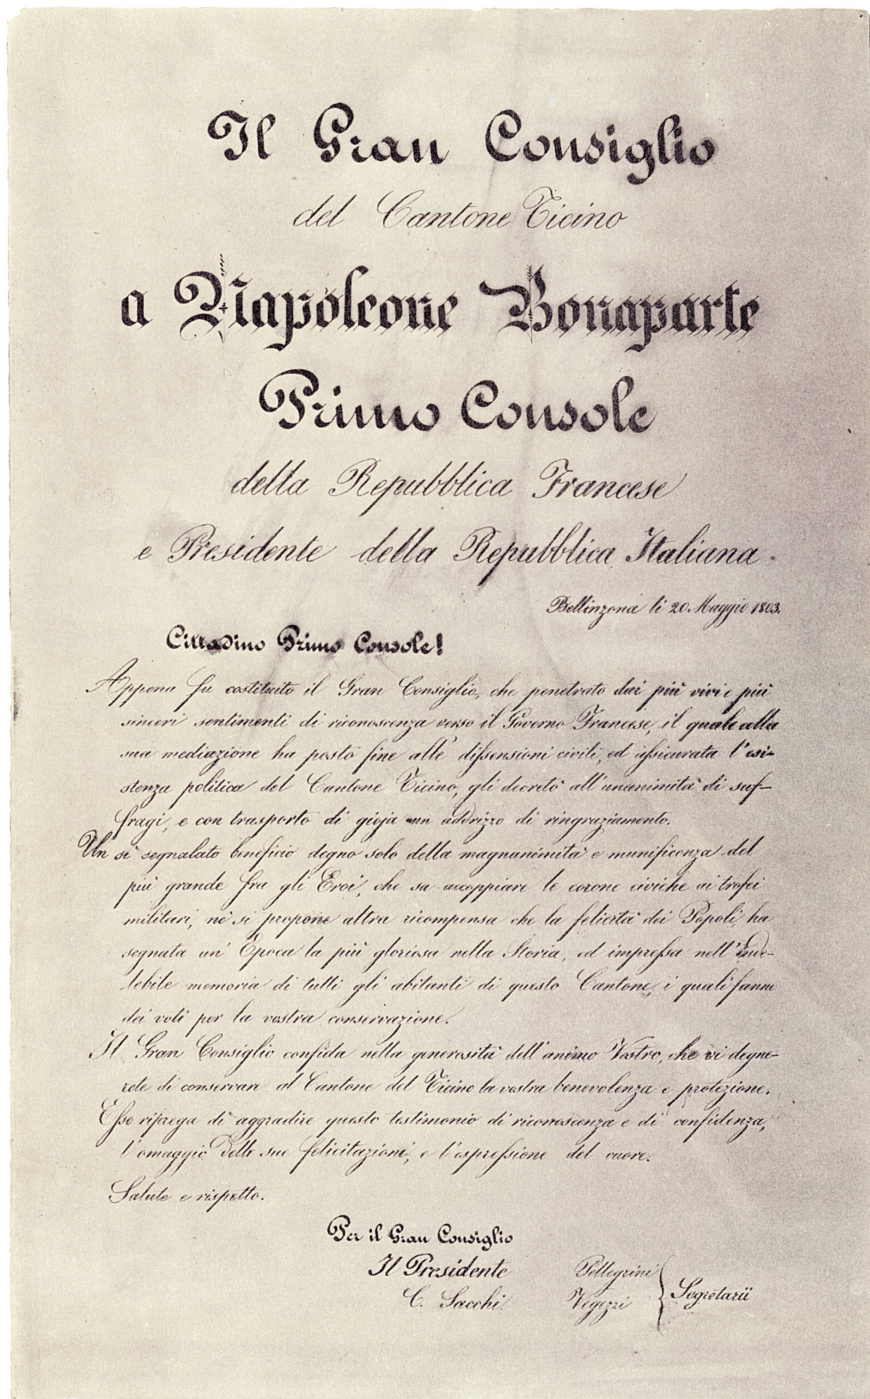 Il Gran Consiglio
del Cantone Ticino
a Napoleone Bonaparte
Primo Console
della Repubblica Francese
e Presidente della Repubblica Italiana.
Bellinzona li 20. Maggio 1803.
Cittadino Primo Console!
Appena fu costituito il Gran Consiglio, che penetrato dai più vivi e più
sinceri sentimenti di riconoscenza verso il Governo Francese, il quale alla
sua mediazione ha posto fine alle dissensioni civili, ed assicurata l'esi-
stenza politica del Cantone Ticino, gli decretò all'unanimità di suf-
fragi, e con trasporto di gioja un addrizzo di ringraziamento.
Un sì segnalato beneficio degno solo della magnanimità e munificenza del
più grande fra gli Eroi, che sa accoppiare le corone civiche ai trofei
militari, nè si propone altra ricompensa che la felicità dei Popoli, ha
segnata un' Epoca la più gloriosa nella Storia, ed impressa nell'inde-
lebile memoria di tutti gli abitanti di questo Cantone, i quali fanno
dei voti per la vostra conservazione.
Il Gran Consiglio confida nella generosità dell'animo Vostro, che vi degne-
rete di conservare al Cantone del Ticino la vostra benevolenza e protezione.
Esso vi prega di aggradire questo testimonio di riconoscenza e di confidenza,
l'omaggio delle sue felicitazioni, e l'espressione del cuore.
Salute e rispetto.
Per il Gran Consiglio
Il Presidente Pellegrini
C. Sacchi Vegezzi Segretarii